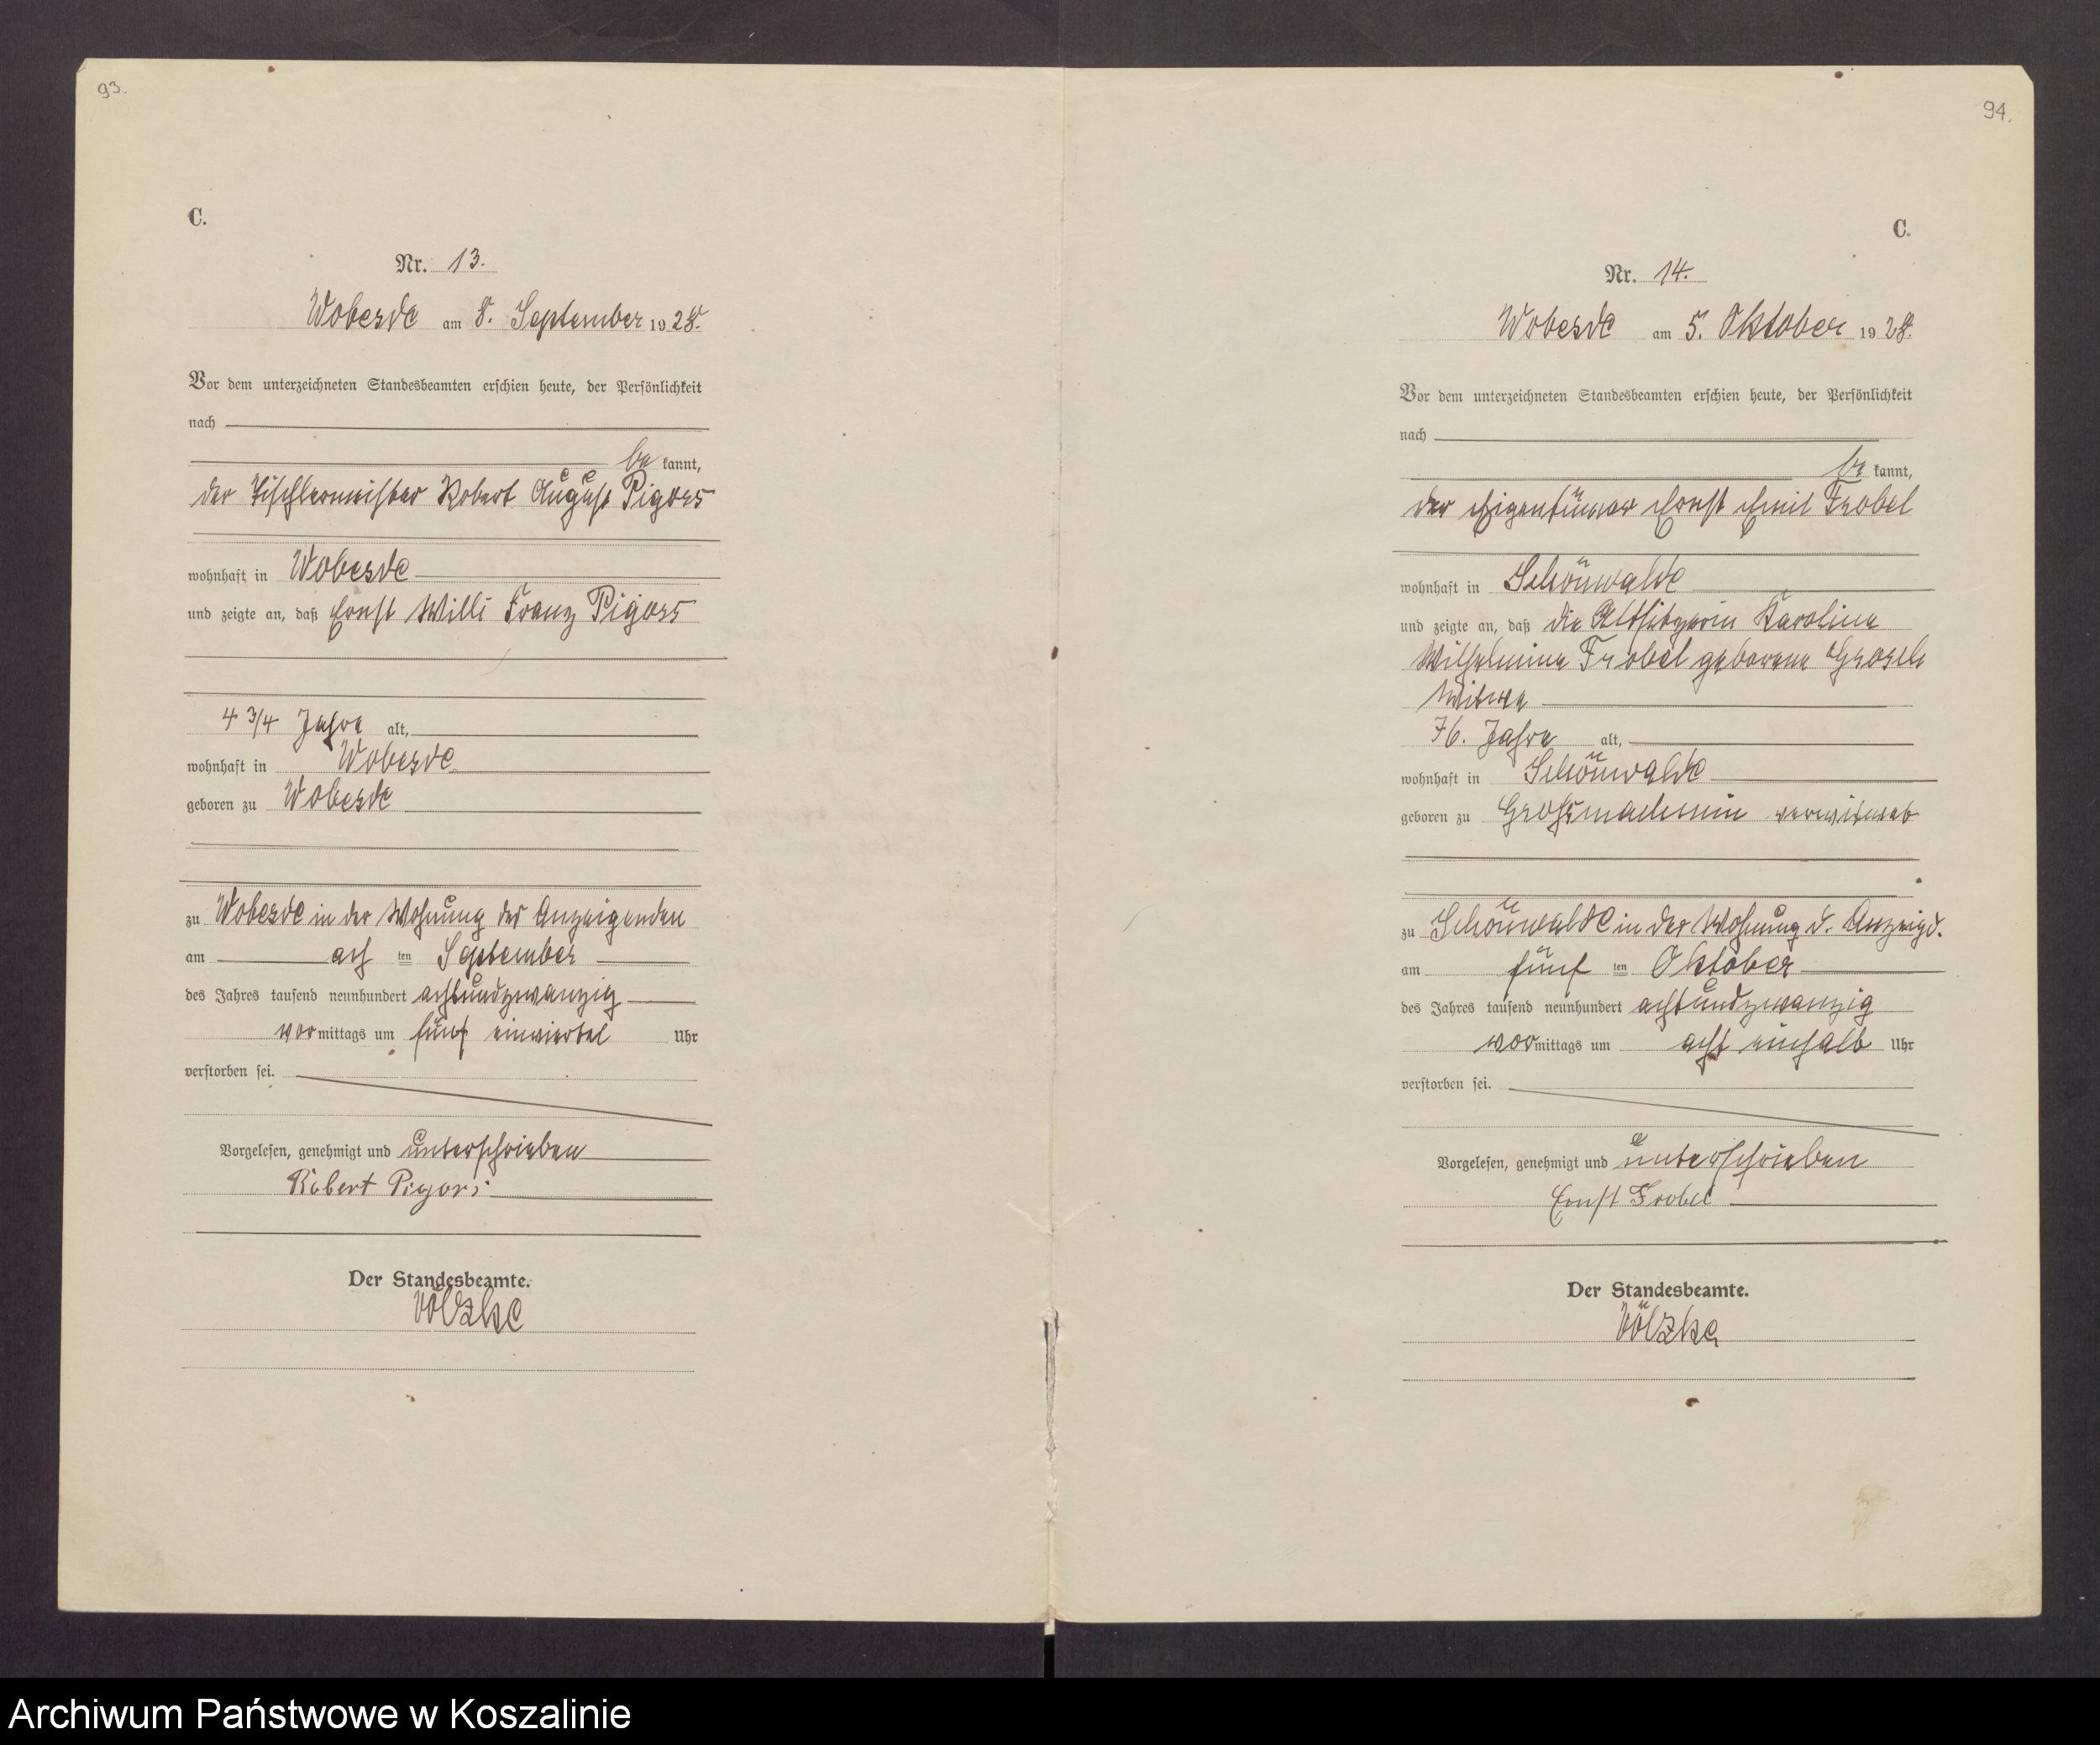 93.
C.
Nr. 13.
Wobesde am 8. September 1928.
Vor dem unterzeichneten Standesbeamten erschien heute, der Persönlichkeit
nach
be kannt,
der Tischlermeister Robert August Pigors
wohnhaft in Wobesde
und zeigte an, daß Ernst Willi Franz Pigors
4 3/4 Jahre alt,
wohnhaft in Wobesde
geboren zu Wobesde
zu Wobesde in der Wohnung des Anzeigenden
am ach ten September
des Jahres tausend neunhundert achtundzwanzig
vormittags um fünf einviertel Uhr
verstorben sei.
Vorgelesen, genehmigt und unterschrieben
Robert Pigors
Der Standesbeamte.
Völzke
94.
C.
Nr. 14.
Wobesde am 5. Oktober 1928.
Vor dem unterzeichneten Standesbeamten erschien heute, der Persönlichkeit
nach
be kannt,
der Eigentümer Ernst Emil Frobel
wohnhaft in Schönwalde
und zeigte an, daß die Altsitzerin Karoline
Wilhelmine Frobel geborene
Witwe
76. Jahre alt,
wohnhaft in Schönwalde
geboren zu Großmachmin verwitwet
zu Schönwalde in der Wohnung d. Anzeigd.
am fünf ten Oktober
des Jahres tausend neunhundert achtundzwanzig
vormittags um acht einhalb Uhr
verstorben sei.
Vorgelesen, genehmigt und unterschrieben
Ernst Frobel
Der Standesbeamte.
Völzke
Archiwum Państwowe w Koszalinie